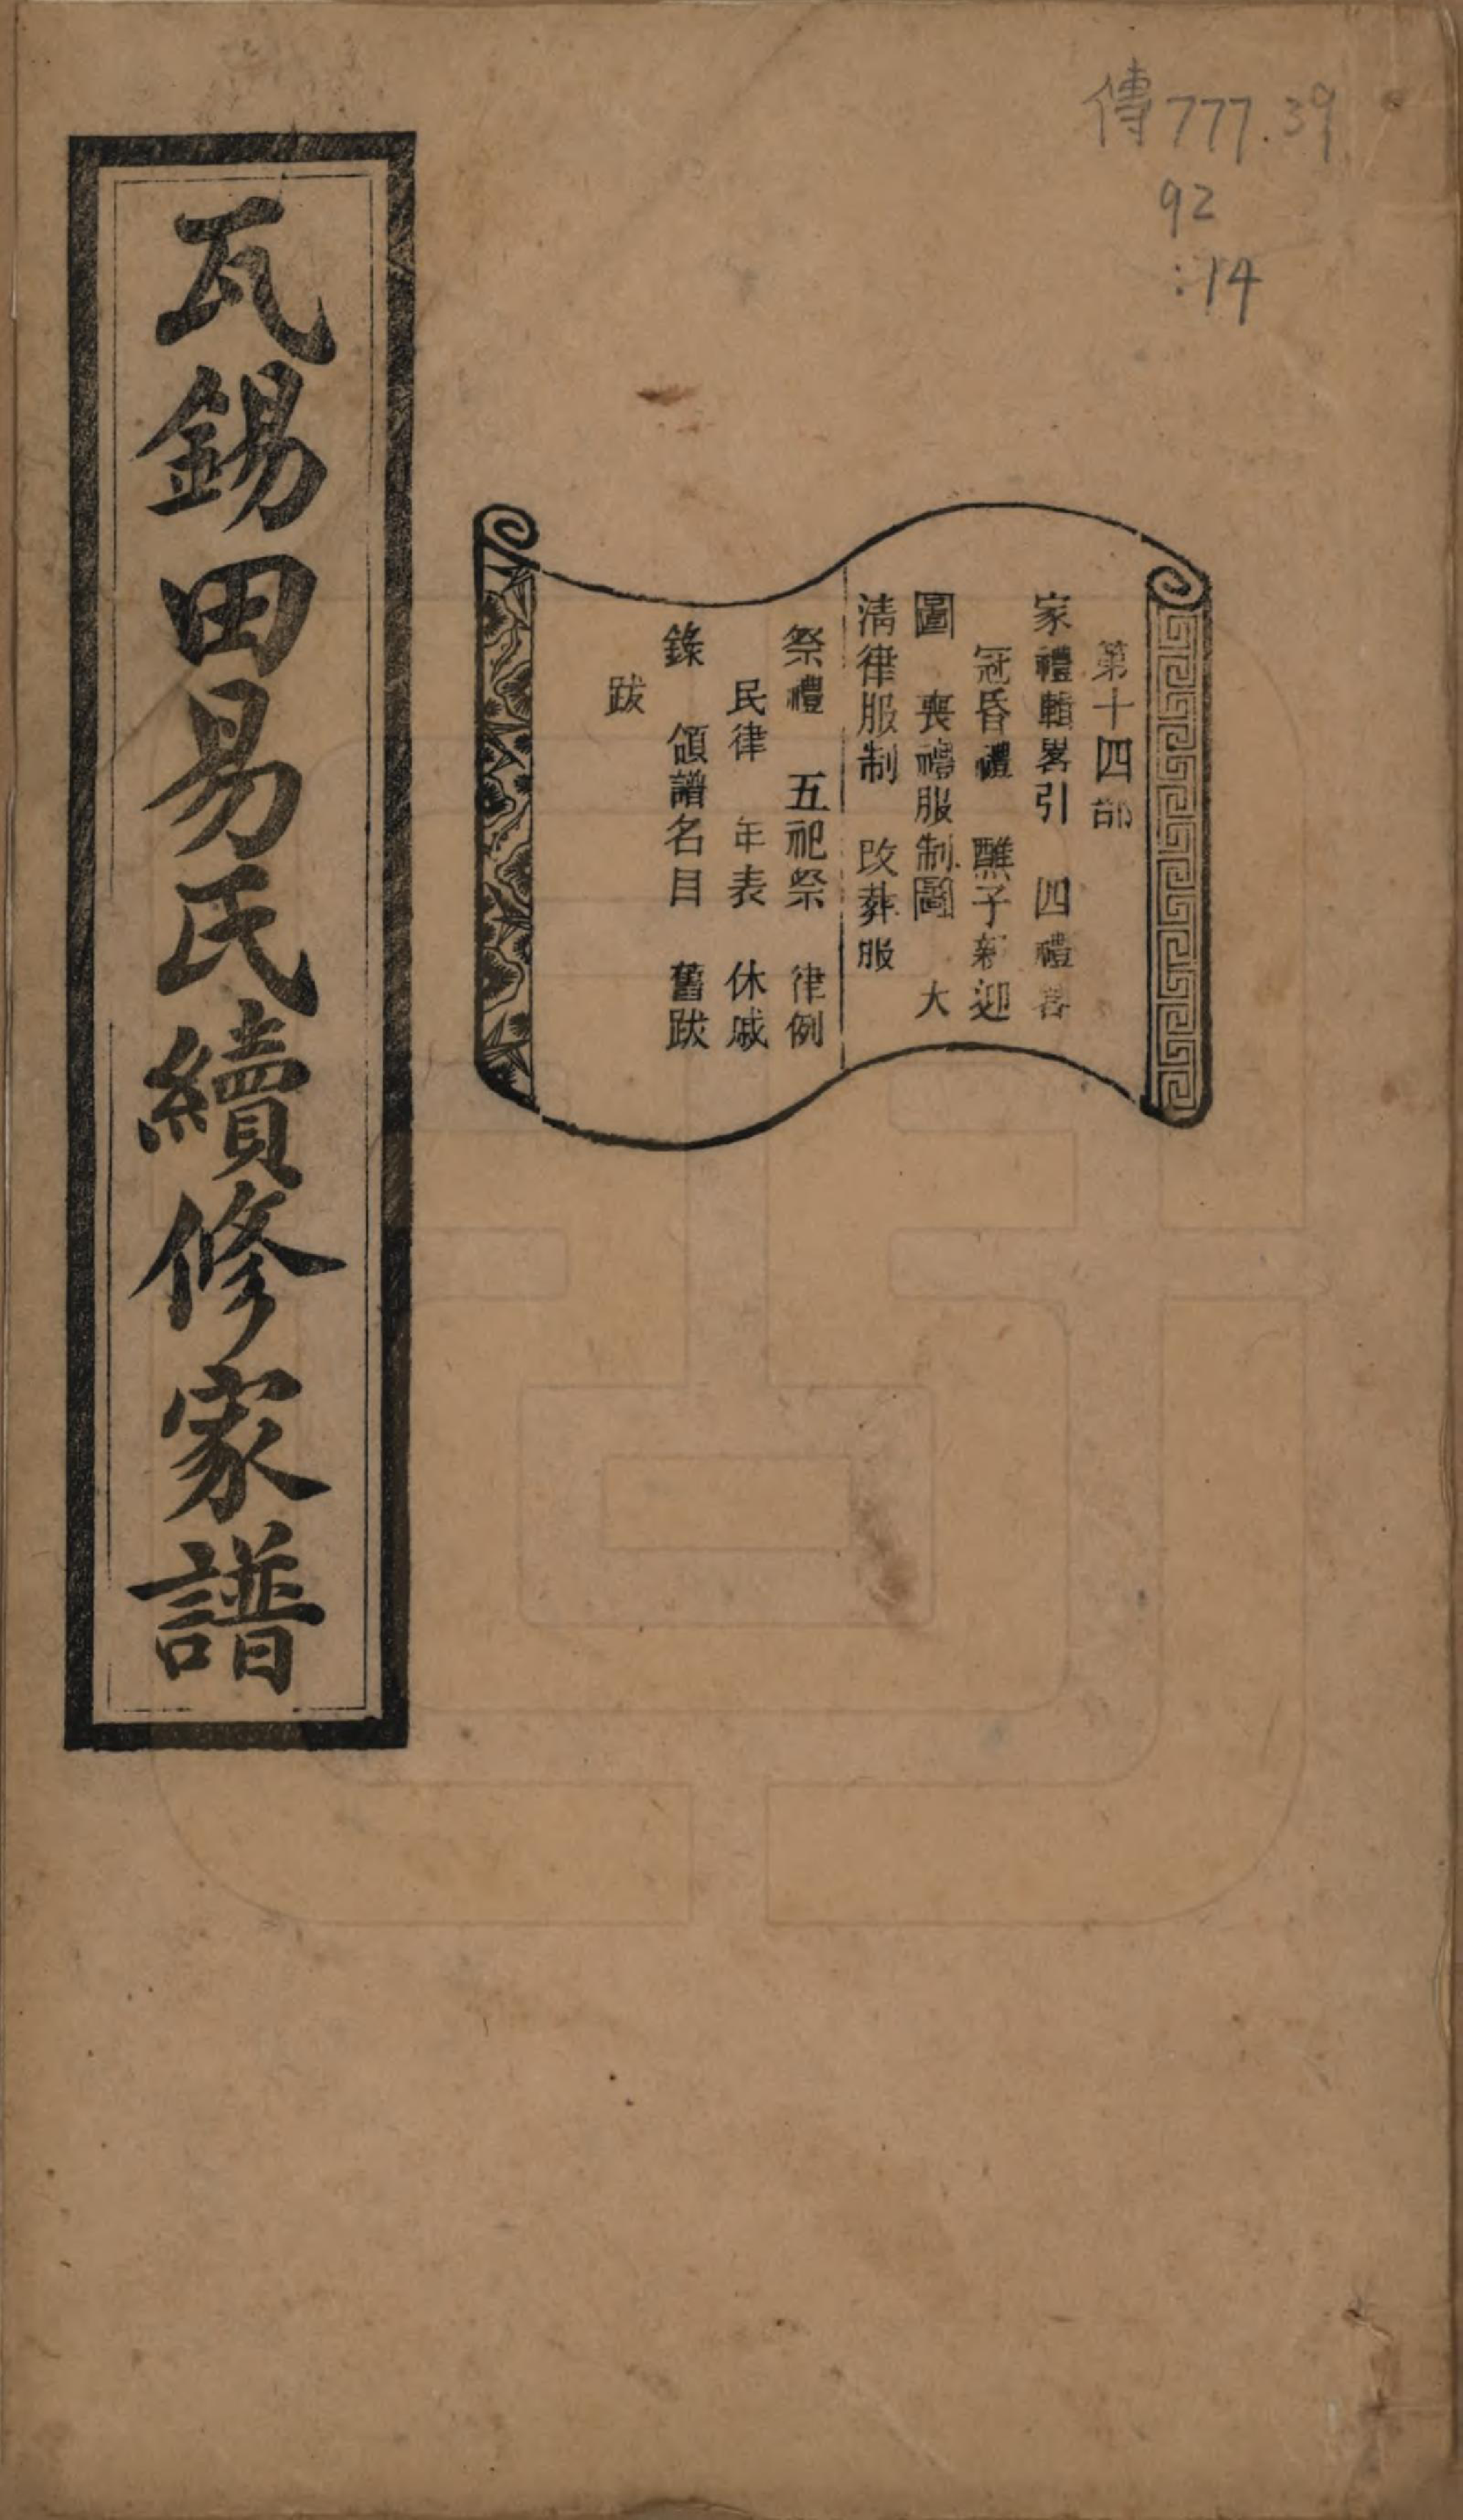 傳777.39
92
:14
第十四部
家禮輯畧引　四禮畧
冠昏禮　醮子新迎
圖　喪禮服制圖　大
清律服制　改葬服
祭禮　五祀祭　律例
民律　年表　休戚
錄　領譜名目　舊跋
跋
瓦錫田易氏續修家譜